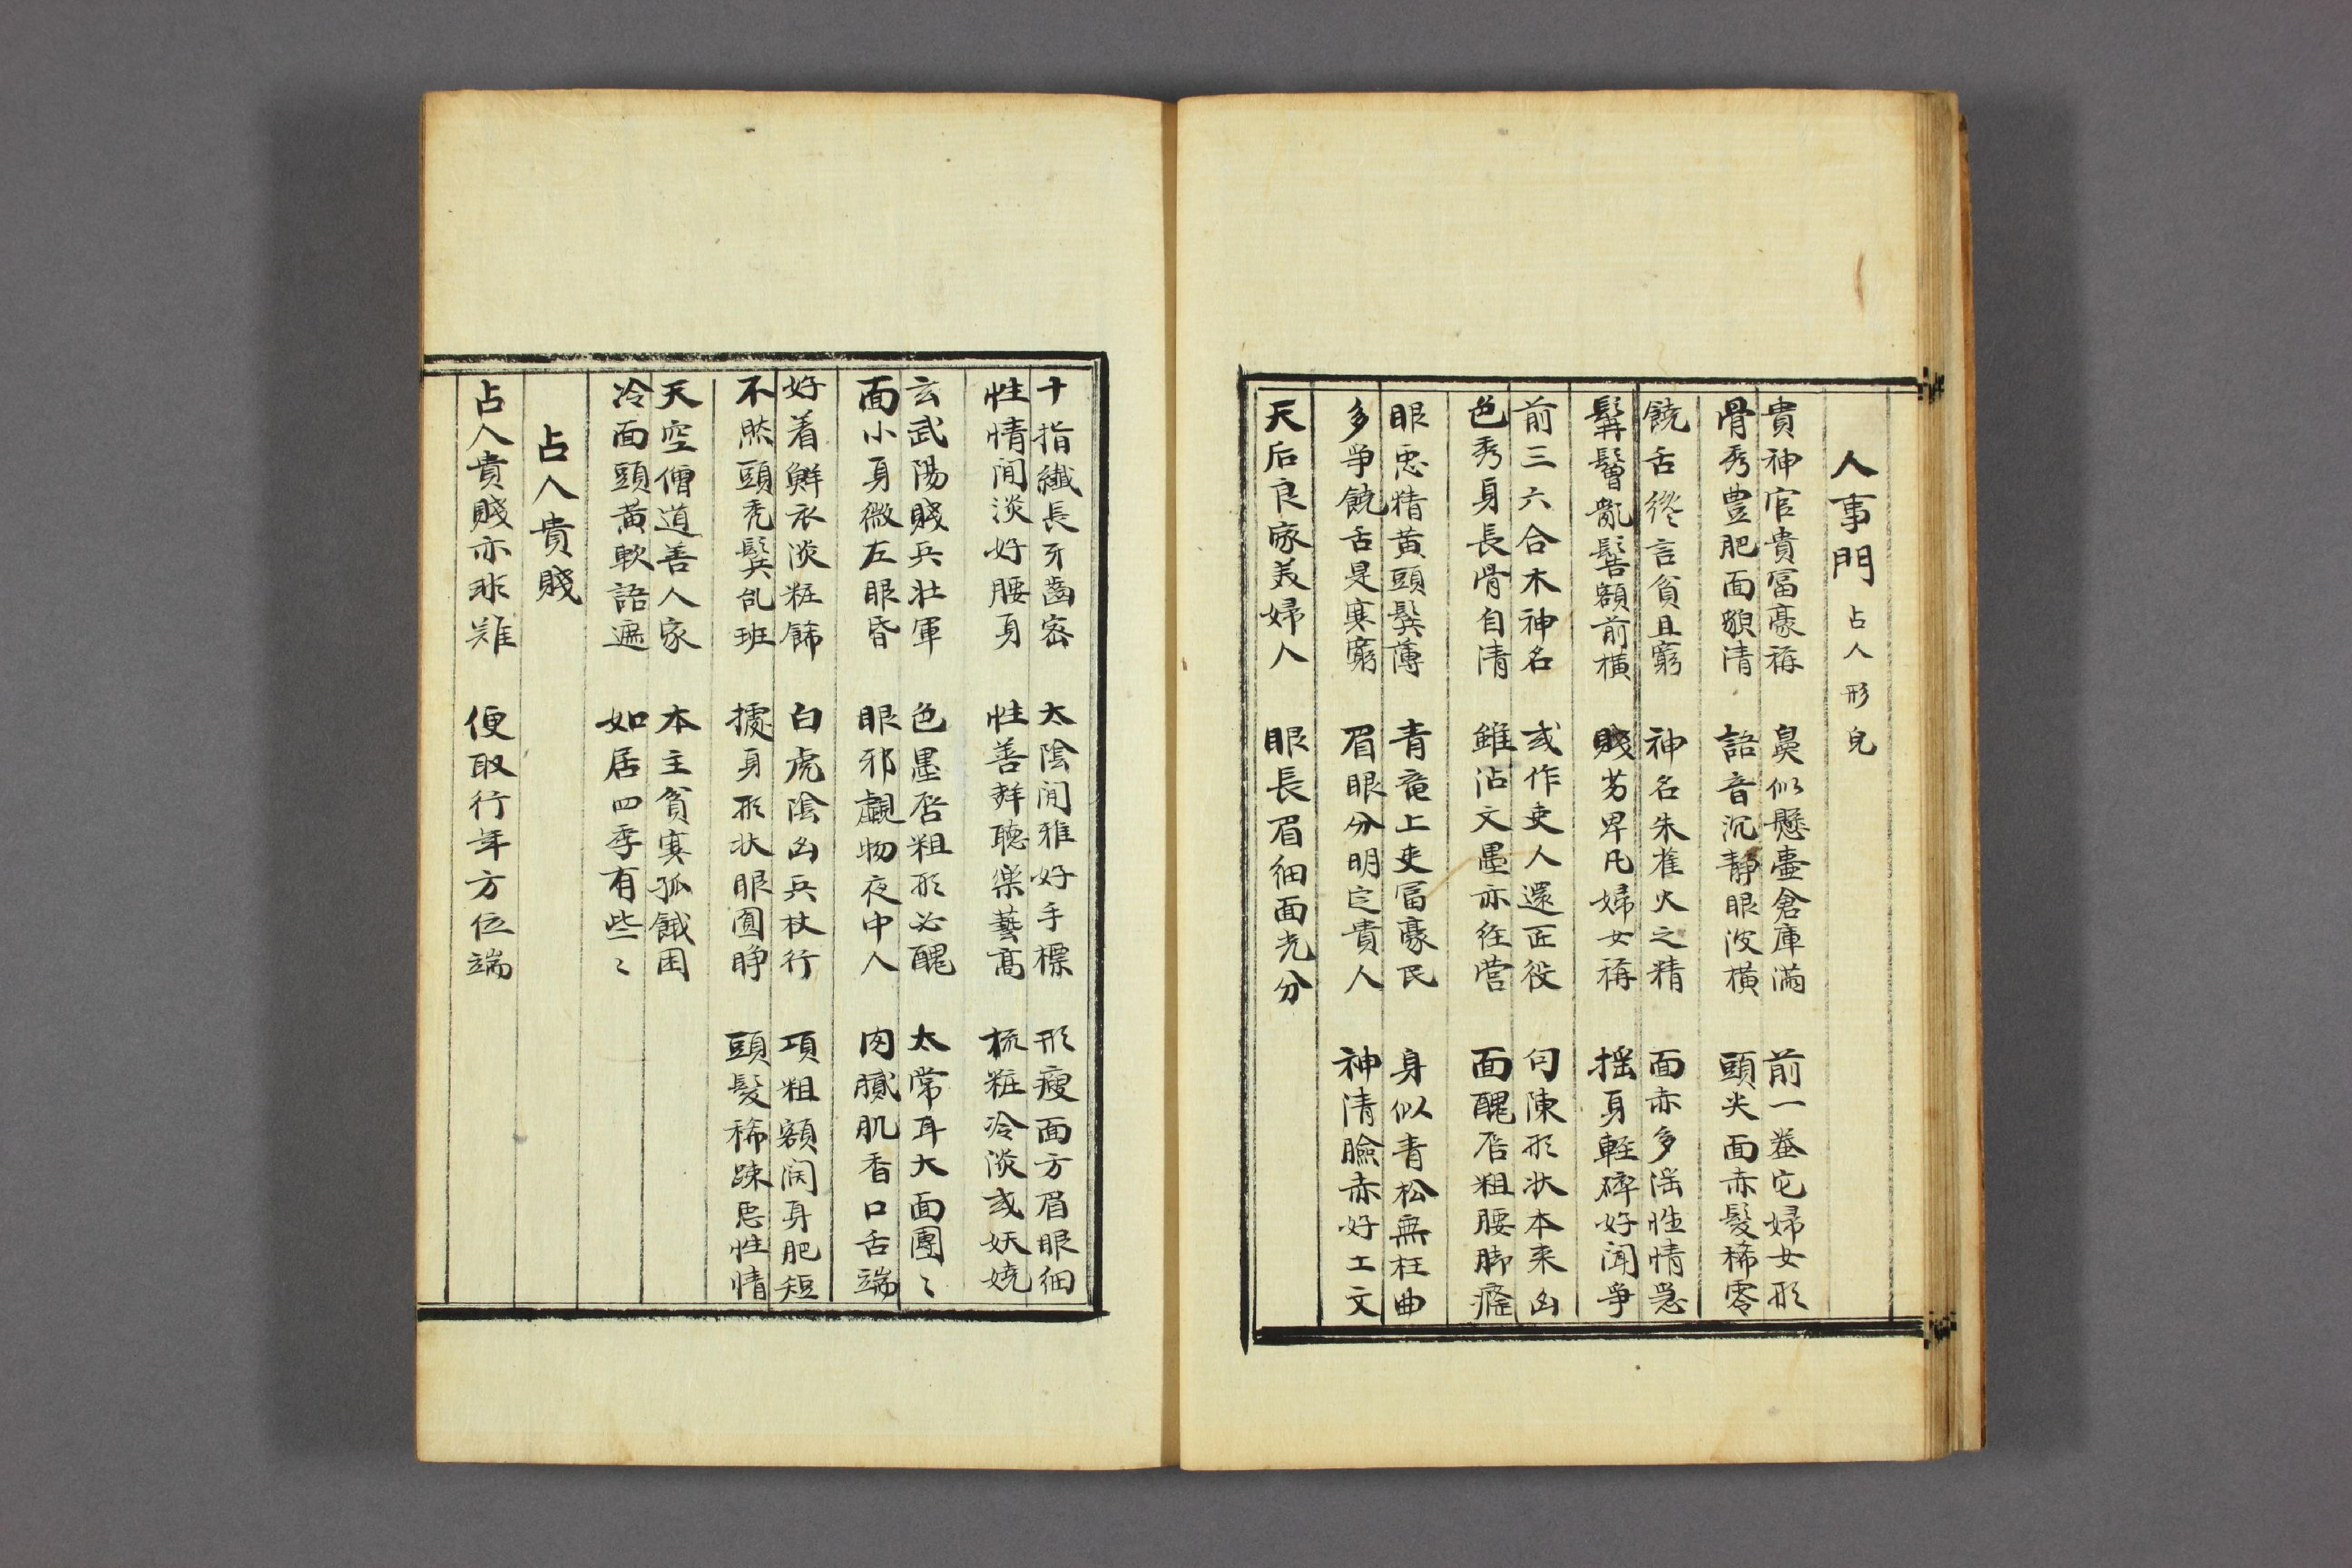 人事門 占人形皃
貴神官貴冨豪稱 鼻似懸壷倉庫滿 前一螣它婦女形
骨秀豊肥面貌清 語音沉靜眼波横 頭尖面赤髮稀零
饒舌後言貧且窮 神名朱雀火之精 面赤多淫性情急
鬅鬙亂髻額前横 賤劣卑凡婦女稱 摇身軽碎好闻爭
前三六合木神名 或作吏人還匠役 勾陳形状本来凶
色秀身長骨自清 雖沾文墨亦經营 面醜唇粗腰脚癃
眼悪精黄頭髮薄 青竜上吏冨豪民 身似青松無枉曲
多爭饒舌是寒窮 眉眼分明定貴人 神清臉赤好工文
天后良家美婦人 眼長眉细面光分
十指纖長牙齒密 太陰閒雅好手標 形瘦面方眉眼细
性情閒淡好腰身 性善鲜聴楽藝髙 梳粧冷淡或妖嬈
玄武陽賤兵壮軍 色墨唇粗形必醜 太常耳大面團〻
面小身微左眼昏 眼邪覷物夜中人 肉膩肌香口舌端
好着鮮衣淡粧飾 白虎陰凶兵杖行 項粗額闊身肥短
不然頭禿鬓乱班 據身形状眼圓睁 頭髮稀踈悪性情
天空僧道善人家 本主貧寒孤餓困
冷面頭黄軟語遲 如居四季有些〻
占人貴賤
占人貴賤亦非难 便取行年方位端